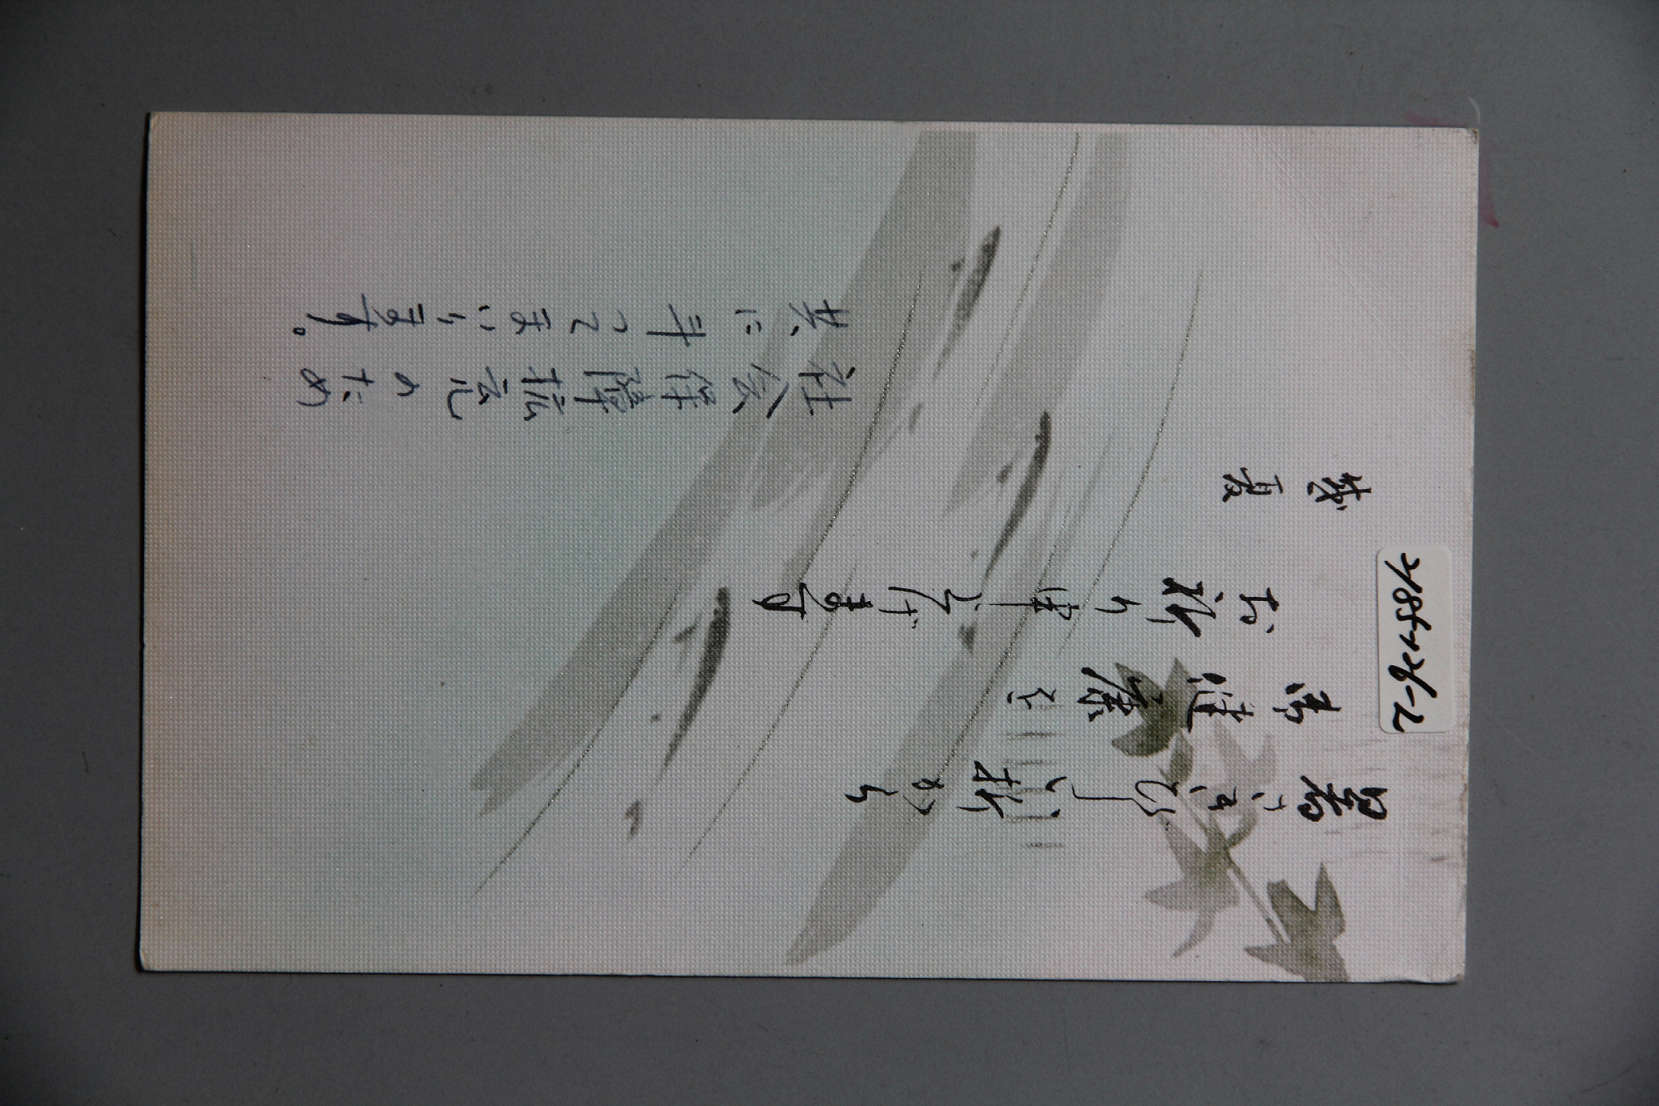 暑さきびしい折から
御健康を
お祈り申し上げます
盛夏
社会保障拡充のため
共に斗ってまいります。